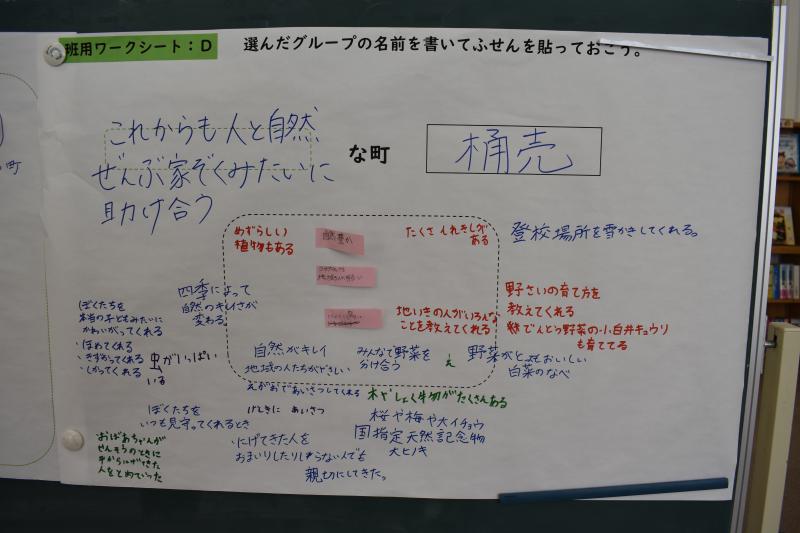 班用ワークシート：D
選んだグループの名前を書いてふせんを貼っておこう。
これからも人と自然
ぜんぶ家ぞくみたいに
助け合う
な町
桶売
めずらしい
植物もある
自然豊か
たくさんれきしが
ある
登校場所を雪かきしてくれる。
四季によって
自然のキレイさが
変わる
ぼくたちを
本当の子どもみたいに
かわいがってくれる
・ほめてくれる
・しかってくれる
虫がいっぱい
いる
地いきの人がいろんな
ことを教えてくれる
野さいの育て方を
教えてくれる
でんとう野菜の小白井キュウリ
も育ててる
自然がキレイ
地域の人たちがやさしい
えがおであいさつしてくれる
みんなで野菜を
分け合う
野菜がとてもおいしい
白菜のなべ
木やしょく物がたくさんある
ぼくたちを
いつも見守ってくれるとき
げんきに あいさつ
・にげてきた人を
おまいりしたりしらない人でも
親切にしてきた。
桜や梅や大イチョウ
国指定天然記念物
大ヒノキ
おばあちゃんが
せんそうのときに
人をとめていった